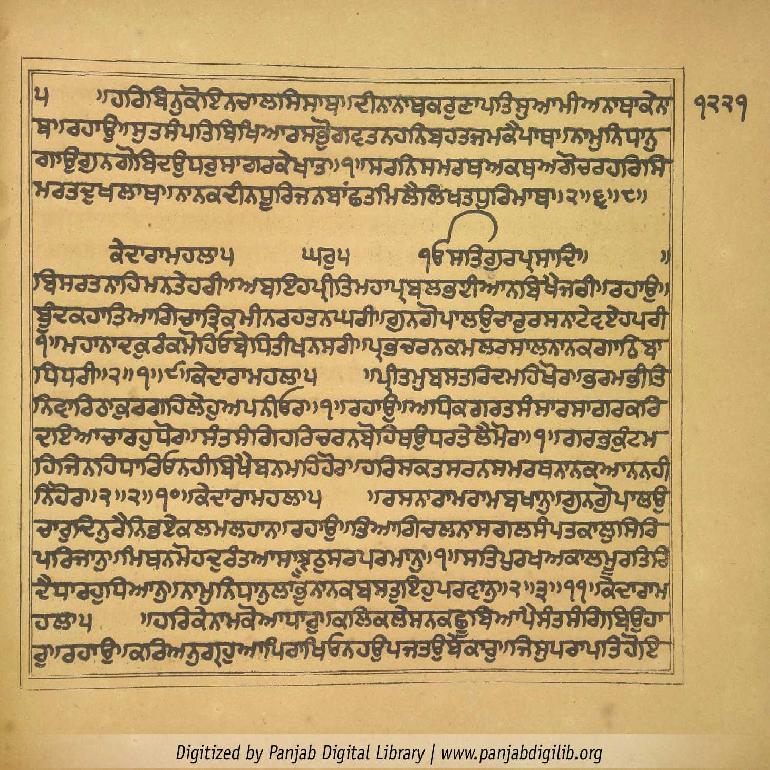 ੫ ॥ਹਰਿਬਿਨੁਕੋਇਨਚਾਲਸਿਸਾਥਾ॥ਦੀਨਾਨਾਥਕਰੁਣਾਪਤਿਸੁਆਮੀਅਨਾਥਾਕੇਨਾ
੧੨੨੧
ਥਾ॥ਰਹਾਉ॥ਸੁਤਸੰਪਤਿਬਿਖਿਆਰਸਭੋੁਗਵਤਨਹਨਿਬਹਤਜਮਕੈਪਾਥਾ॥ਨਾਮੁਨਿਧਾਨੁ
ਗਾਉਗੁਨਗੋਬਿੰਦਉਧਰੁਸਾਗਰਕੇਖਾਤਾ॥੧॥ਸਰਨਿਸਮਰਥਅਕਥਅਗੋਚਰਹਰਿਸਿ
ਮਰਤਦੁਖਲਾਥਾ॥ਨਾਨਕਦੀਨਧੂਰਿਜਨਬਾਂਛਤਮਿਲੈਲਿਖਤਧੁਰਿਮਾਥਾ॥੨॥੬॥੮॥
ਕੇਦਾਰਾਮਹਲਾ੫ ਘਰੁ੫ ੴਸਤਿਗੁਰਪ੍ਰਸਾਦਿ॥ ॥
ਬਿਸਰਤਨਾਹਿਮਨਤੇਹਰੀ॥ਅਬਇਹਪ੍ਰੀਤਿਮਹਾਪ੍ਰਬਲਭਈਆਨਬਿਖੈਜਰੀ॥ਰਹਾਉ॥
ਬੂੰਦਕਹਾਤਿਆਗਿਚਾਤ੍ਰਿਕਮੀਨਰਹਤਨਘਰੀ॥ਗੁਨਗੋਪਾਲਉਚਾਰੁਰਸਨਟੇਵਏਹਪਰੀ
੧॥ਮਹਾਨਾਦਕੁਰੰਕਮੋਹਿਓਬੇਧਿਤੀਖਨਸਰੀ॥ਪ੍ਰਭਚਰਨਕਮਲਰਸਾਲਨਾਨਕਗਾਠਿਬਾ
ਧਿਧਰੀ॥੨॥੧॥੯॥ਕੇਦਾਰਾਮਹਲਾ੫ ॥ਪ੍ਰੀਤਮੁਬਸਤਰਿਦਮਹਿਖੋਰ॥ਭਰਮਭੀਤਿ
ਨਿਵਾਰਿਠਾਕੁਰਗਹਿਲੇਹੁਅਪਨੀਓਰ॥੧॥ਰਹਾਉ॥ਅਧਿਕਗਰਤਸੰਸਾਰਸਾਗਰਕਰਿ
ਦਇਆਚਾਰਹੁਧੋਰ॥ਸੰਤਸੰਗਿਹਰਿਚਰਨਬੋਹਿਥਉਧਰਤੇਲੈਮੋਰ॥੧॥ਗਰਭਕੁੰਟਮ
ਹਿਜਿਨਹਿਧਾਰਿਓਨਹੀਬਿਖੈਬਨਮਹਿਹੋਰ॥ਹਰਿਸਕਤਸਰਨਸਮਰਥਨਾਨਕਆਨਨਹੀ
ਨਿਹੋਰ॥੨॥੨॥੧੦॥ਕੇਦਾਰਾਮਹਲਾ੫ ॥ਰਸਨਾਰਾਮਰਾਮਬਖਾਨੁ॥ਗੁਨਗੋਪਾਲਉ
ਚਾਰੁਦਿਨੁਰੈਨਿਭਏਕਲਮਲਹਾਨ॥ਰਹਾਉ॥ਤਿਆਗਿਚਲਨਾਸਗਲਸੰਪਤਕਾਲੁਸਿਰਿ
ਪਰਿਜਾਨੁ॥ਮਿਥਨਮੋਹਦੁਰੰਤਆਸਾਝੂਠੁਸਰਪਰਮਾਨੁ॥੧॥ਸਤਿਪੁਰਖਅਕਾਲਮੂਰਤਿਰਿ
ਦੈਧਾਰਹੁਧਿਆਨੁ॥ਨਾਮੁਨਿਧਾਨੁਲਾਭੁਨਾਨਕਬਸਤੁਇਹੁਪਰਵਾਨੁ॥੨॥੩॥੧੧॥ਕੇਦਾਰਾਮ
ਹਲਾ੫ ॥ਹਰਿਕੇਨਾਮਕੋਆਧਾਰੁ॥ਕਲਿਕਲੇਸਨਕਛੁਬਿਆਪੈਸੰਤਸੰਗਿਬਿਉਹਾ
ਰੁ॥ਰਹਾਉ॥ਕਰਿਅਨੁਗ੍ਰਹੁਆਪਿਰਾਖਿਓਨਹਉਪਜਤਉਬੇਕਾਰੁ॥ਜਿਸੁਪਰਾਪਤਿਹੋਇ
Digitized by Panjab Digital Library | www.panjabdigilib.org